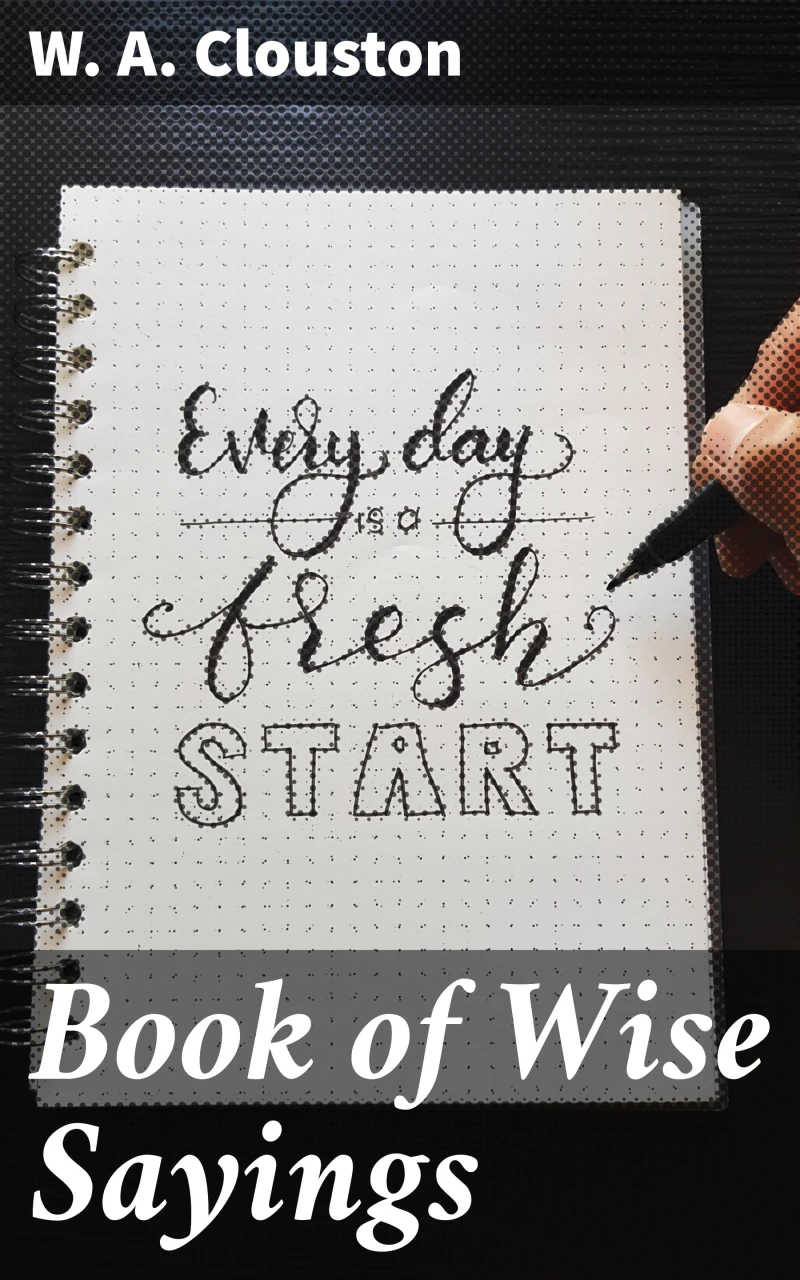 W. A. Clouston
Every day
is a
fresh
START
Book of Wise
Sayings